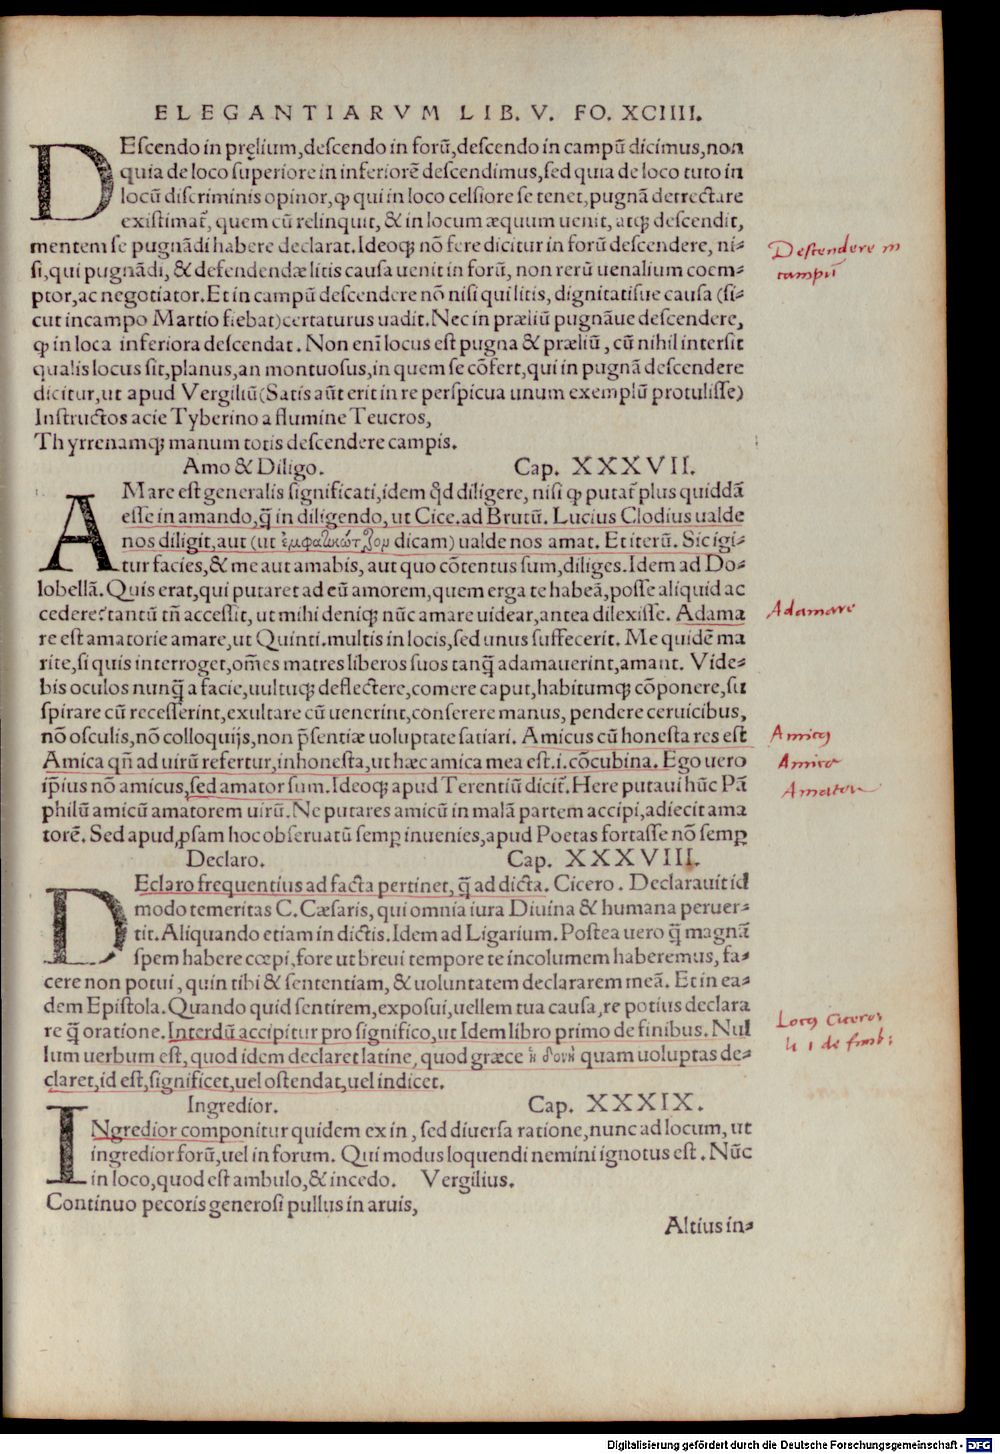 ELEGANTIARVM LIB. V. FO. XCIIII.
DEscendo in pręlium, descendo in forū, descendo in campū dicimus, non
quia de loco superiore in inferiorē descendimus, sed quia de loco tuto in
locū discriminis opinor, ꝙ qui in loco celsiore se tenet, pugnā detrectare
existimat̄, quem cū relinquit, & in locum æquum uenit, atq; descendit,
mentem se pugnādi habere declarat. Ideoq; nō fere dicitur in forū descendere, ni-
si, qui pugnādi, & defendendæ litis causa uenit in forū, non rerū uenalium coem-
ptor, ac negotiator. Et in campū descendere nō nisi qui litis, dignitatisue causa (si-
cut incampo Martio fiebat) certaturus uadit. Nec in præliū pugnāue descendere,
ꝙ in loca inferiora descendat. Non enī locus est pugna & præliū, cū nihil intersit
qualis locus sit, planus, an montuosus, in quem se cōfert, qui in pugnā descendere
dicitur, ut apud Vergiliū (Satis aūt erit in re perspicua unum exemplū protulisse)
Instructos acie Tyberino a flumine Teucros,
Thyrrenamq; manum totis descendere campis.
Amo & Diligo. Cap. XXXVII.
AMare est generalis significati, idem qđ diligere, nisi ꝙ putat̄ plus quiddā
esse in amando, q̄ in diligendo, ut Cice. ad Brutū. Lucius Clodius ualde
nos diligit, aut (ut ἐμφατικώτερον dicam) ualde nos amat. Et iterū. Sic igi-
tur facies, & me aut amabis, aut quo cōtentus sum, diliges. Idem ad Do-
lobellā. Quis erat, qui putaret ad eū amorem, quem erga te habeā, posse aliquid ac
cedere? tantū tn̄ accessit, ut mihi deniq; nūc amare uidear, antea dilexisse. Adama
re est amatorie amare, ut Quinti. multis in locis, sed unus suffecerit. Me quidē ma
rite, si quis interroget, om̄es matres liberos suos tanq̄ adamauerint, amant. Vide-
bis oculos nunq̄ a facie, uultuq; deflectere, comere caput, habitumq; cōponere, su
spirare cū recesserint, exultare cū uenerint, conserere manus, pendere ceruicibus,
nō osculis, nō colloquijs, non p̄sentiæ uoluptate satiari. Amicus cū honesta res est
Amica qn̄ ad uirū refertur, inhonesta, ut hæc amica mea est .i. cōcubina. Ego uero
ip̄ius nō amicus, sed amator sum. Ideoq; apud Terentiū dicit̄. Here putaui hūc Pā
philū amicū amatorem uirū. Ne putares amicū in malā partem accipi, adiecit ama
torē. Sed apud ꝓsam hoc obseruatū semꝑ inuenies, apud Poetas fortasse nō semꝑ
Declaro. Cap. XXXVIII.
DEclaro frequentius ad facta pertinet, q̄ ad dicta. Cicero. Declarauit id
modo temeritas C. Cæsaris, qui omnia iura Diuina & humana peruer-
tit. Aliquando etiam in dictis. Idem ad Ligarium. Postea uero q̄ magnā
spem habere cœpi, fore ut breui tempore te incolumem haberemus, fa-
cere non potui, quin tibi & sententiam, & uoluntatem declararem meā. Et in ea-
dem Epistola. Quando quid sentirem, exposui, uellem tua causa, re potius declara
re q̄ oratione. Interdū accipitur pro significo, ut Idem libro primo de finibus. Nul
lum uerbum est, quod idem declaret latine, quod græce ἡδονὴ quam uoluptas de-
claret, id est, significet, uel ostendat, uel indicet.
Ingredior. Cap. XXXIX.
INgredior componitur quidem ex in, sed diuersa ratione, nunc ad locum, ut
ingredior forū, uel in forum. Qui modus loquendi nemini ignotus est. Nūc
in loco, quod est ambulo, & incedo. Vergilius.
Continuo pecoris generosi pullus in aruis,
Altius in-
Descendere in
campū
Adamare
Amicꝰ
Amica
Amator
Locꝰ Ciceroꝭ
li 1 de finib:
Digitalisierung gefördert durch die Deutsche Forschungsgemeinschaft - DFG